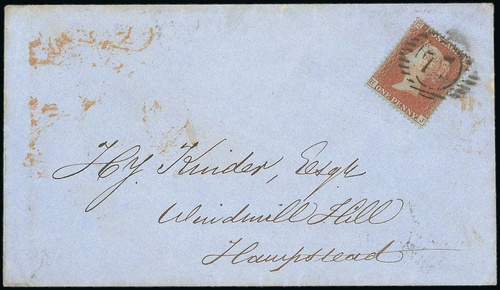 ONE PENNY
Hy. Kinder, Esqr
Windmill Hill
Hampstead